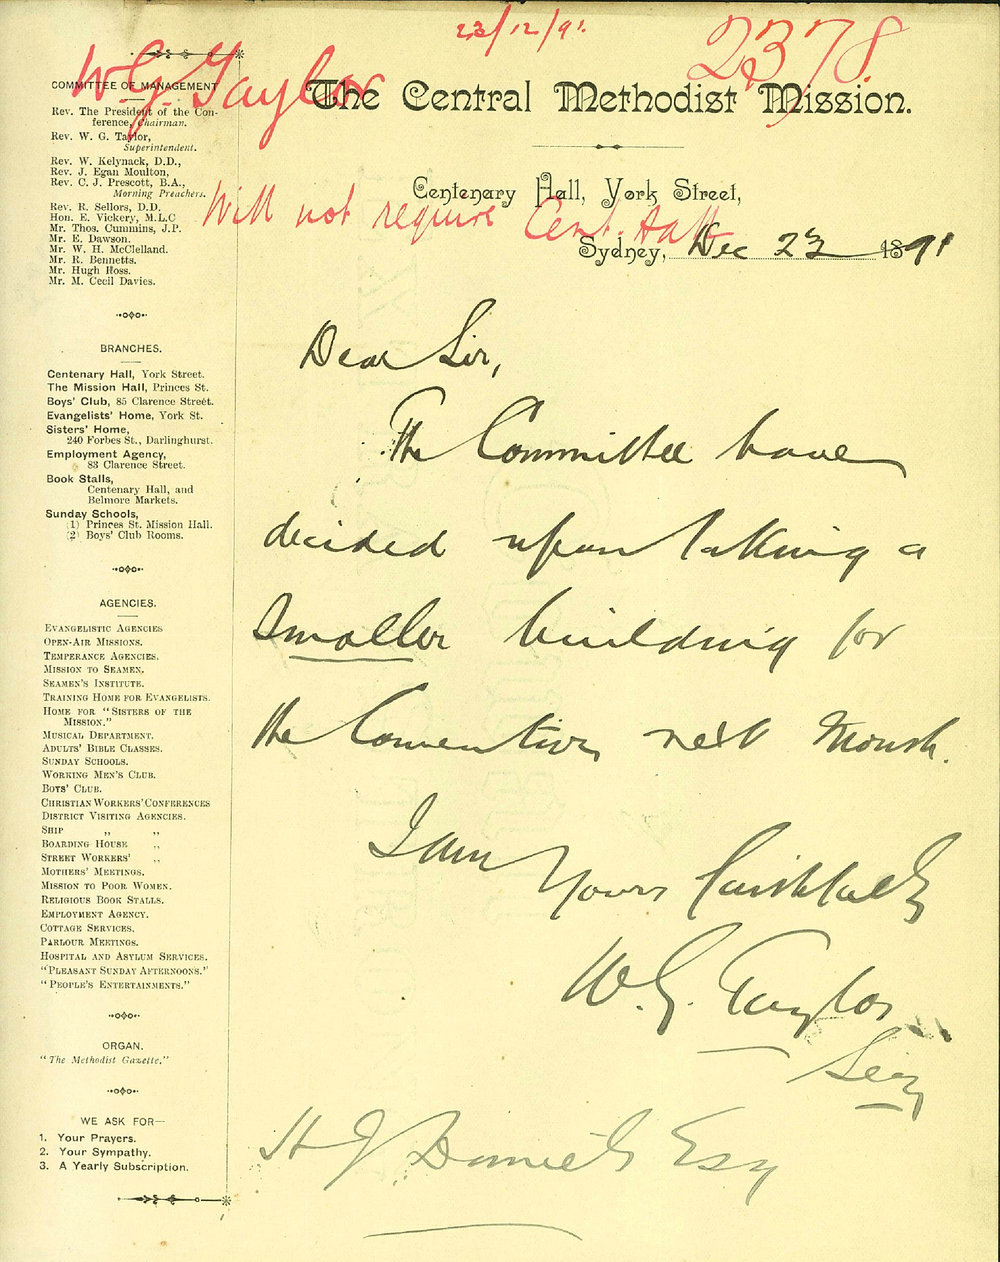 23/12/91
2378
W. G. Taylor
Will not require Cent. Hall
The Central Methodist Mission.
Centenary Hall, York Street,
Sydney, Dec 23 1891
COMMITTEE OF MANAGEMENT
Rev. The President of the Con-
ference, Chairman.
Rev. W. G. Taylor,
Superintendent.
Rev. W. Kelynack, D.D.,
Rev. J. Egan Moulton,
Rev. C. J. Prescott, B.A.,
Morning Preachers.
Rev. R. Sellors, D.D.
Hon. E. Vickery, M.L.C
Mr. Thos. Cummins, J.P.
Mr. E. Dawson.
Mr. W. H. McClelland.
Mr. R. Bennetts.
Mr. Hugh Ross.
Mr. M. Cecil Davies.
BRANCHES.
Centenary Hall, York Street.
The Mission Hall, Princes St.
Boys' Club, 85 Clarence Street.
Evangelists' Home, York St.
Sisters' Home,
240 Forbes St., Darlinghurst.
Employment Agency,
83 Clarence Street.
Book Stalls,
Centenary Hall, and
Belmore Markets.
Sunday Schools,
(1) Princes St. Mission Hall.
(2) Boys' Club Rooms.
AGENCIES.
EVANGELISTIC AGENCIES
OPEN-AIR MISSIONS.
TEMPERANCE AGENCIES.
MISSION TO SEAMEN.
SEAMEN'S INSTITUTE.
TRAINING HOME FOR EVANGELISTS.
HOME FOR "SISTERS OF THE
MISSION."
MUSICAL DEPARTMENT.
ADULTS' BIBLE CLASSES.
SUNDAY SCHOOLS.
WORKING MEN'S CLUB.
BOYS' CLUB.
CHRISTIAN WORKERS' CONFERENCES
DISTRICT VISITING AGENCIES.
SHIP ,, ,,
BOARDING HOUSE ,,
STREET WORKERS' ,,
MOTHERS' MEETINGS.
MISSION TO POOR WOMEN.
RELIGIOUS BOOK STALLS.
EMPLOYMENT AGENCY.
COTTAGE SERVICES.
PARLOUR MEETINGS.
HOSPITAL AND ASYLUM SERVICES.
"PLEASANT SUNDAY AFTERNOONS."
"PEOPLE'S ENTERTAINMENTS."
ORGAN.
"The Methodist Gazette."
WE ASK FOR—
1. Your Prayers.
2. Your Sympathy.
3. A Yearly Subscription.
Dear Sir,
The Committee have
decided upon taking a
smaller building for
the Convention next Month.
I am
Yours faithfully
W. G. Taylor
Secy
H J Daniels Esq